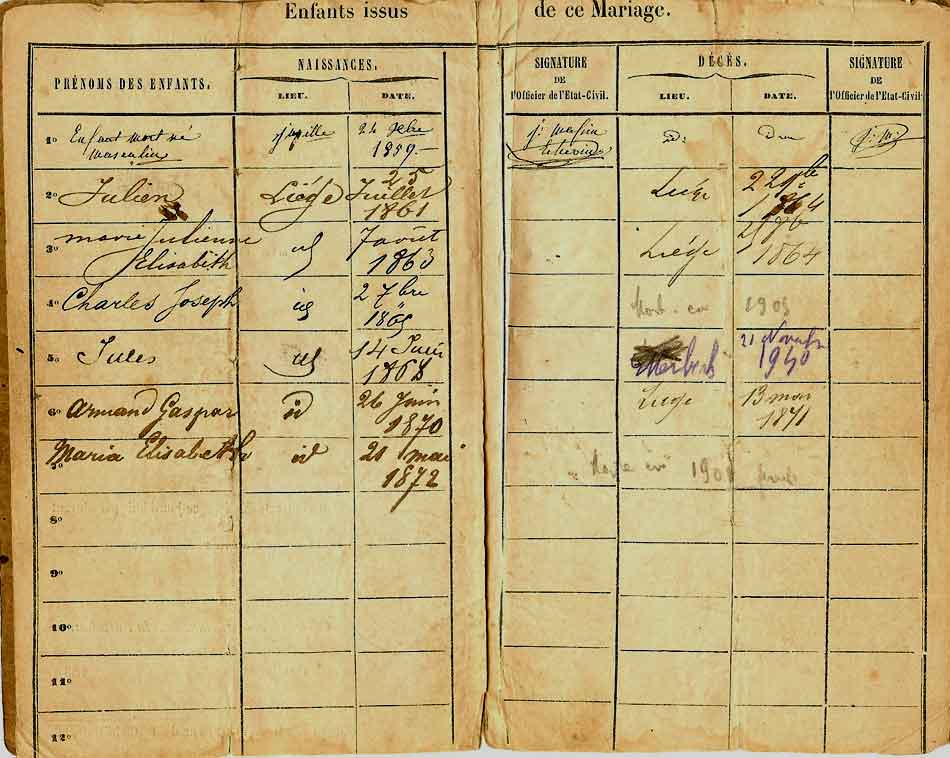 Enfants issus de ce Mariage.
PRÉNOMS DES ENFANTS.
NAISSANCES.
LIEU.
DATE.
SIGNATURE
DE
l'Officier de l'Etat-Civil.
DÉCÈS.
LIEU.
DATE.
SIGNATURE
DE
l'Officier de l'Etat-Civil
1º Enfant mort né
masculin
Jupille
24
1859
2º Julien
Liége
25
Juillet
1861
22
3º marie Julienne
Elisabeth
7 août
1863
Liége
1864
4º Charles Joseph
id
2 7bre
Mort en
5º Jules
id
14 Juin
1868
21
6º Armand Gaspar
id
26 Juin
1870
Liége
13 mai
1871
7º Maria Elisabeth
id
21 mai
1872
8º
9º
10º
11º
12º